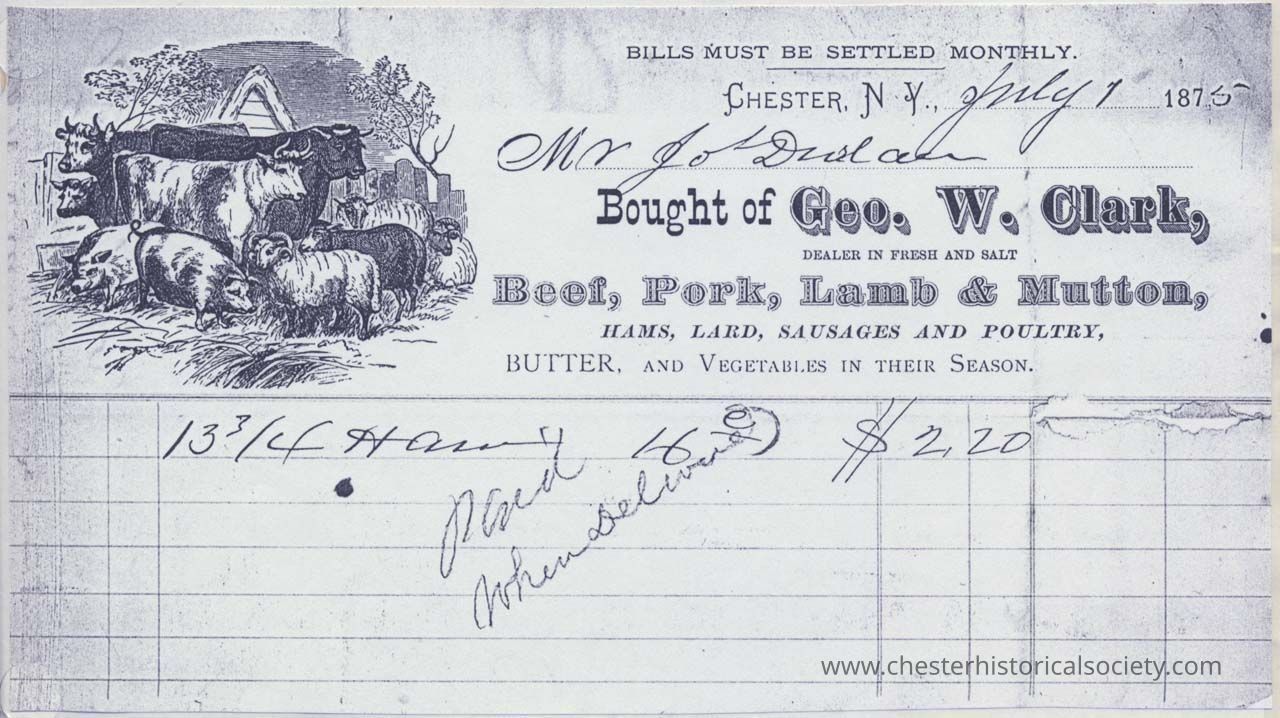 BILLS MUST BE SETTLED MONTHLY.
CHESTER, N. Y., July 1 1875
Mr Jos Durlan
Bought of Geo. W. Clark,
DEALER IN FRESH AND SALT
Beef, Pork, Lamb & Mutton,
HAMS, LARD, SAUSAGES AND POULTRY,
BUTTER, AND VEGETABLES IN THEIR SEASON.
13 3/4 Ham 16 $ 2,20
Paid
When Delivered
www.chesterhistoricalsociety.com